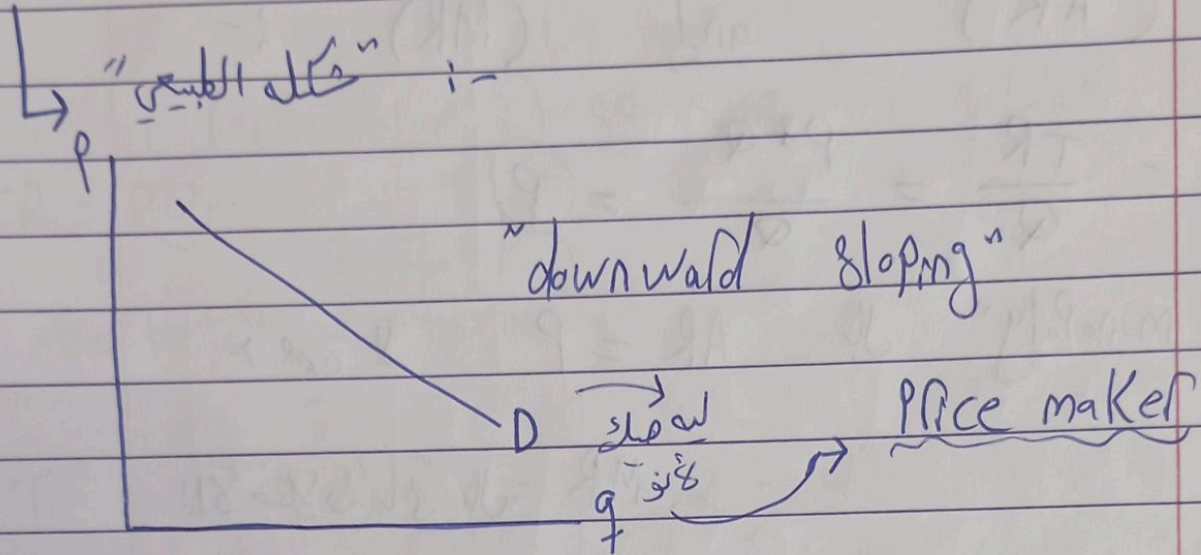 "شكله الطبيعي" :-
P
"downward sloping"
D له ميل Price maker
q